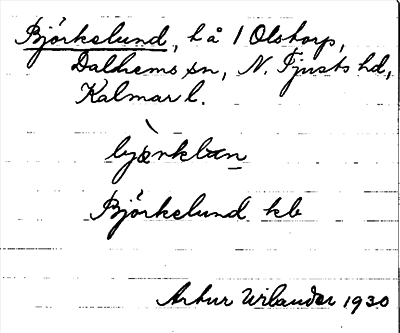 Björkelund, hå 1 Olstorp,
Dalhems sn, N. Tjusts hd,
Kalmar l.
Björkelund kb
Artur Wilander 1930